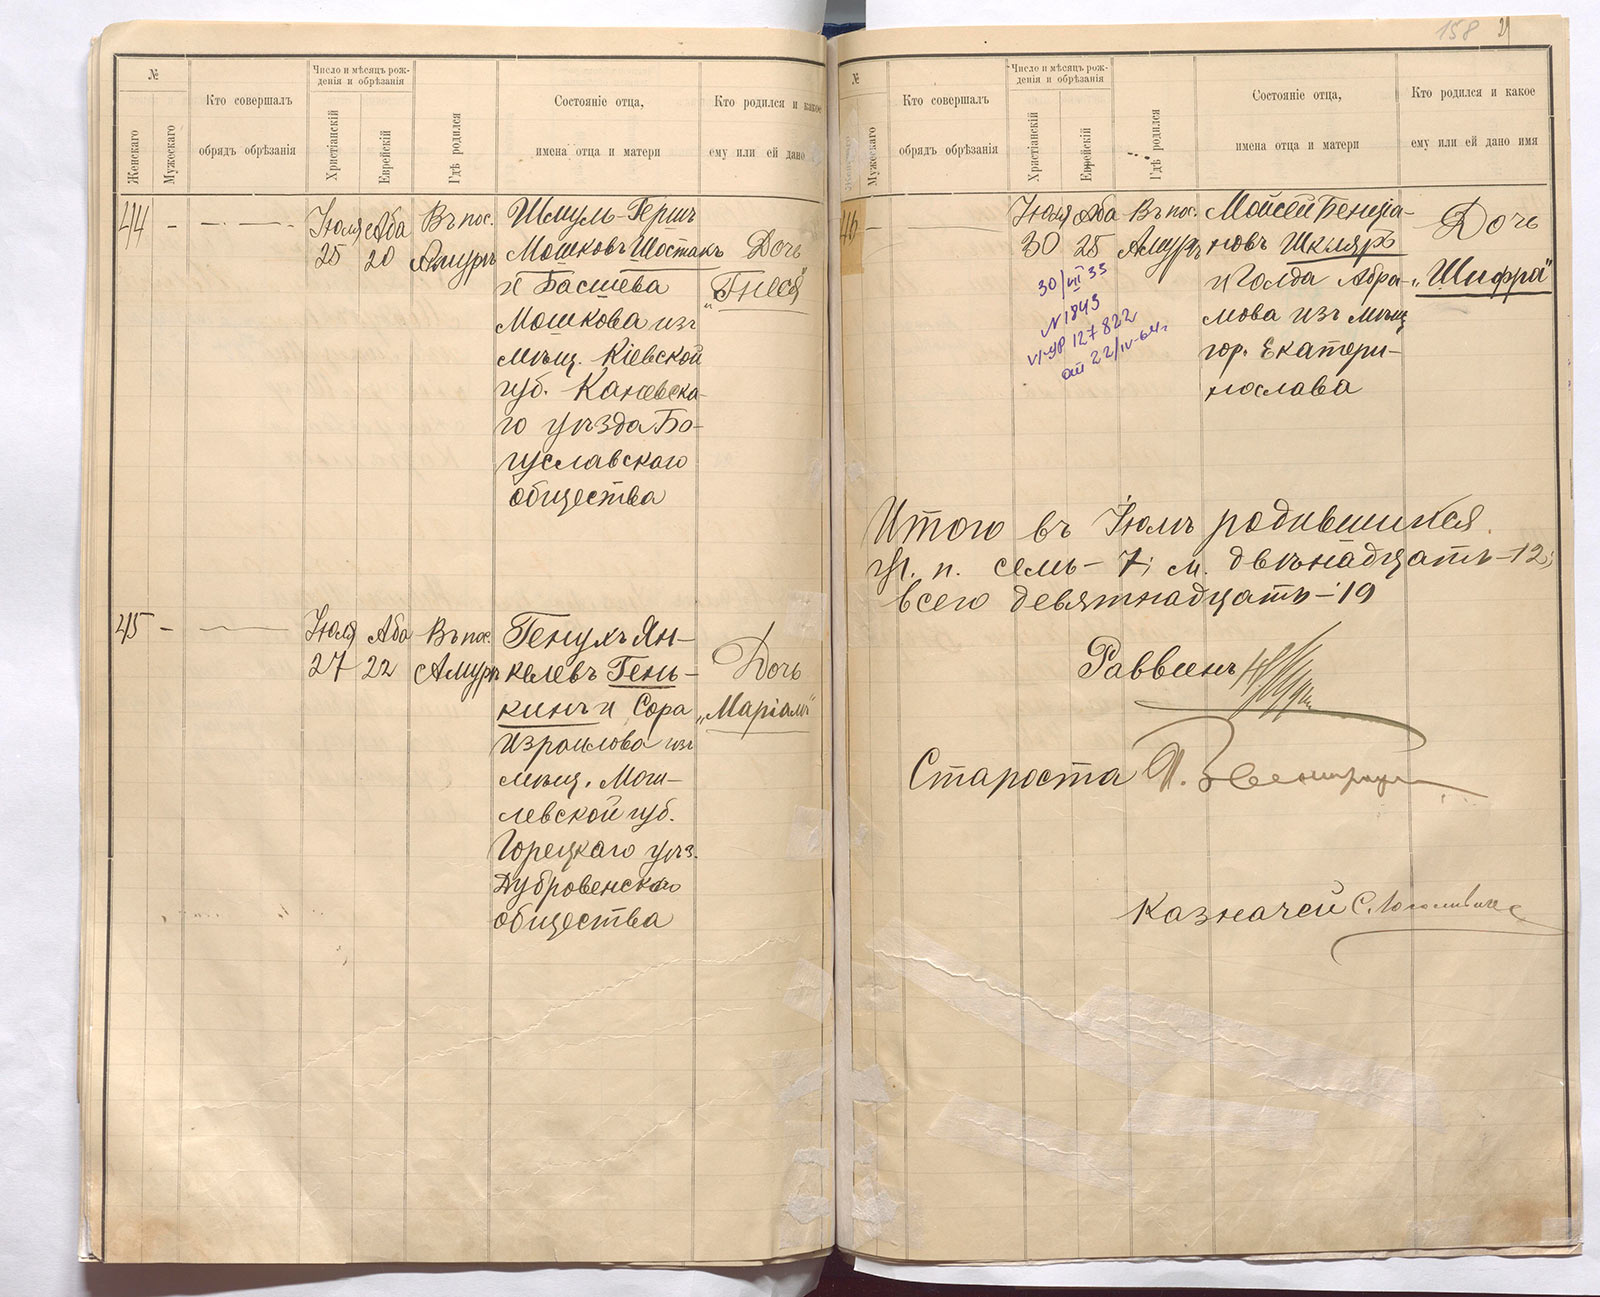 №
Женскаго
Мужескаго
Кто совершалъ
обрядъ обрѣзанія
Число и мѣсяцъ рож-
денія и обрѣзанія
Христіанскій
Еврейскій
Гдѣ родился
Состояніе отца,
имена отца и матери
Кто родился и какое
ему или ей дано
44 - - - -
Іюля
25
Аба
20
Въ пос.
Амуръ
Шмуль-Гершъ
Мошковъ Шостакъ
и Басшева
Мошкова изъ
мѣщ. Кіевской
губ. Каневска-
го уѣзда Бо-
гуславскаго
общества
Дочь
„Гнеся"
45 - -
Іюля
27
Аба
22
Въ пос.
Амуръ
Генухъ Ян-
келевъ Гень-
кинъ и Сора
Израилова изъ
мѣщ. Моги-
левской губ.
Горецкаго уѣз.
Дубровенскаго
общества
Дочь
„Маріамъ"
158
№
Мужескаго
Кто совершалъ
обрядъ обрѣзанія
Число и мѣсяцъ рож-
денія и обрѣзанія
Христіанскій
Еврейскій
Гдѣ родился
Состояніе отца,
имена отца и матери
Кто родился и какое
ему или ей дано имя
46 -
Іюля
30
Аба
25
Въ пос.
Амуръ
Мойсей Беніа-
новъ Шкляръ
и Голда Абра-
мова изъ мѣщ
гор. Екатери-
нослава
Дочь
„Шифра"
30/VII 35
N 1843
127822
от 22/IV-64г
Итого въ Іюлѣ родившихся
м. п. семь - 7; ж. двѣнадцать - 12;
всего девятнадцать - 19
Раввинъ
Староста
Казначей С.